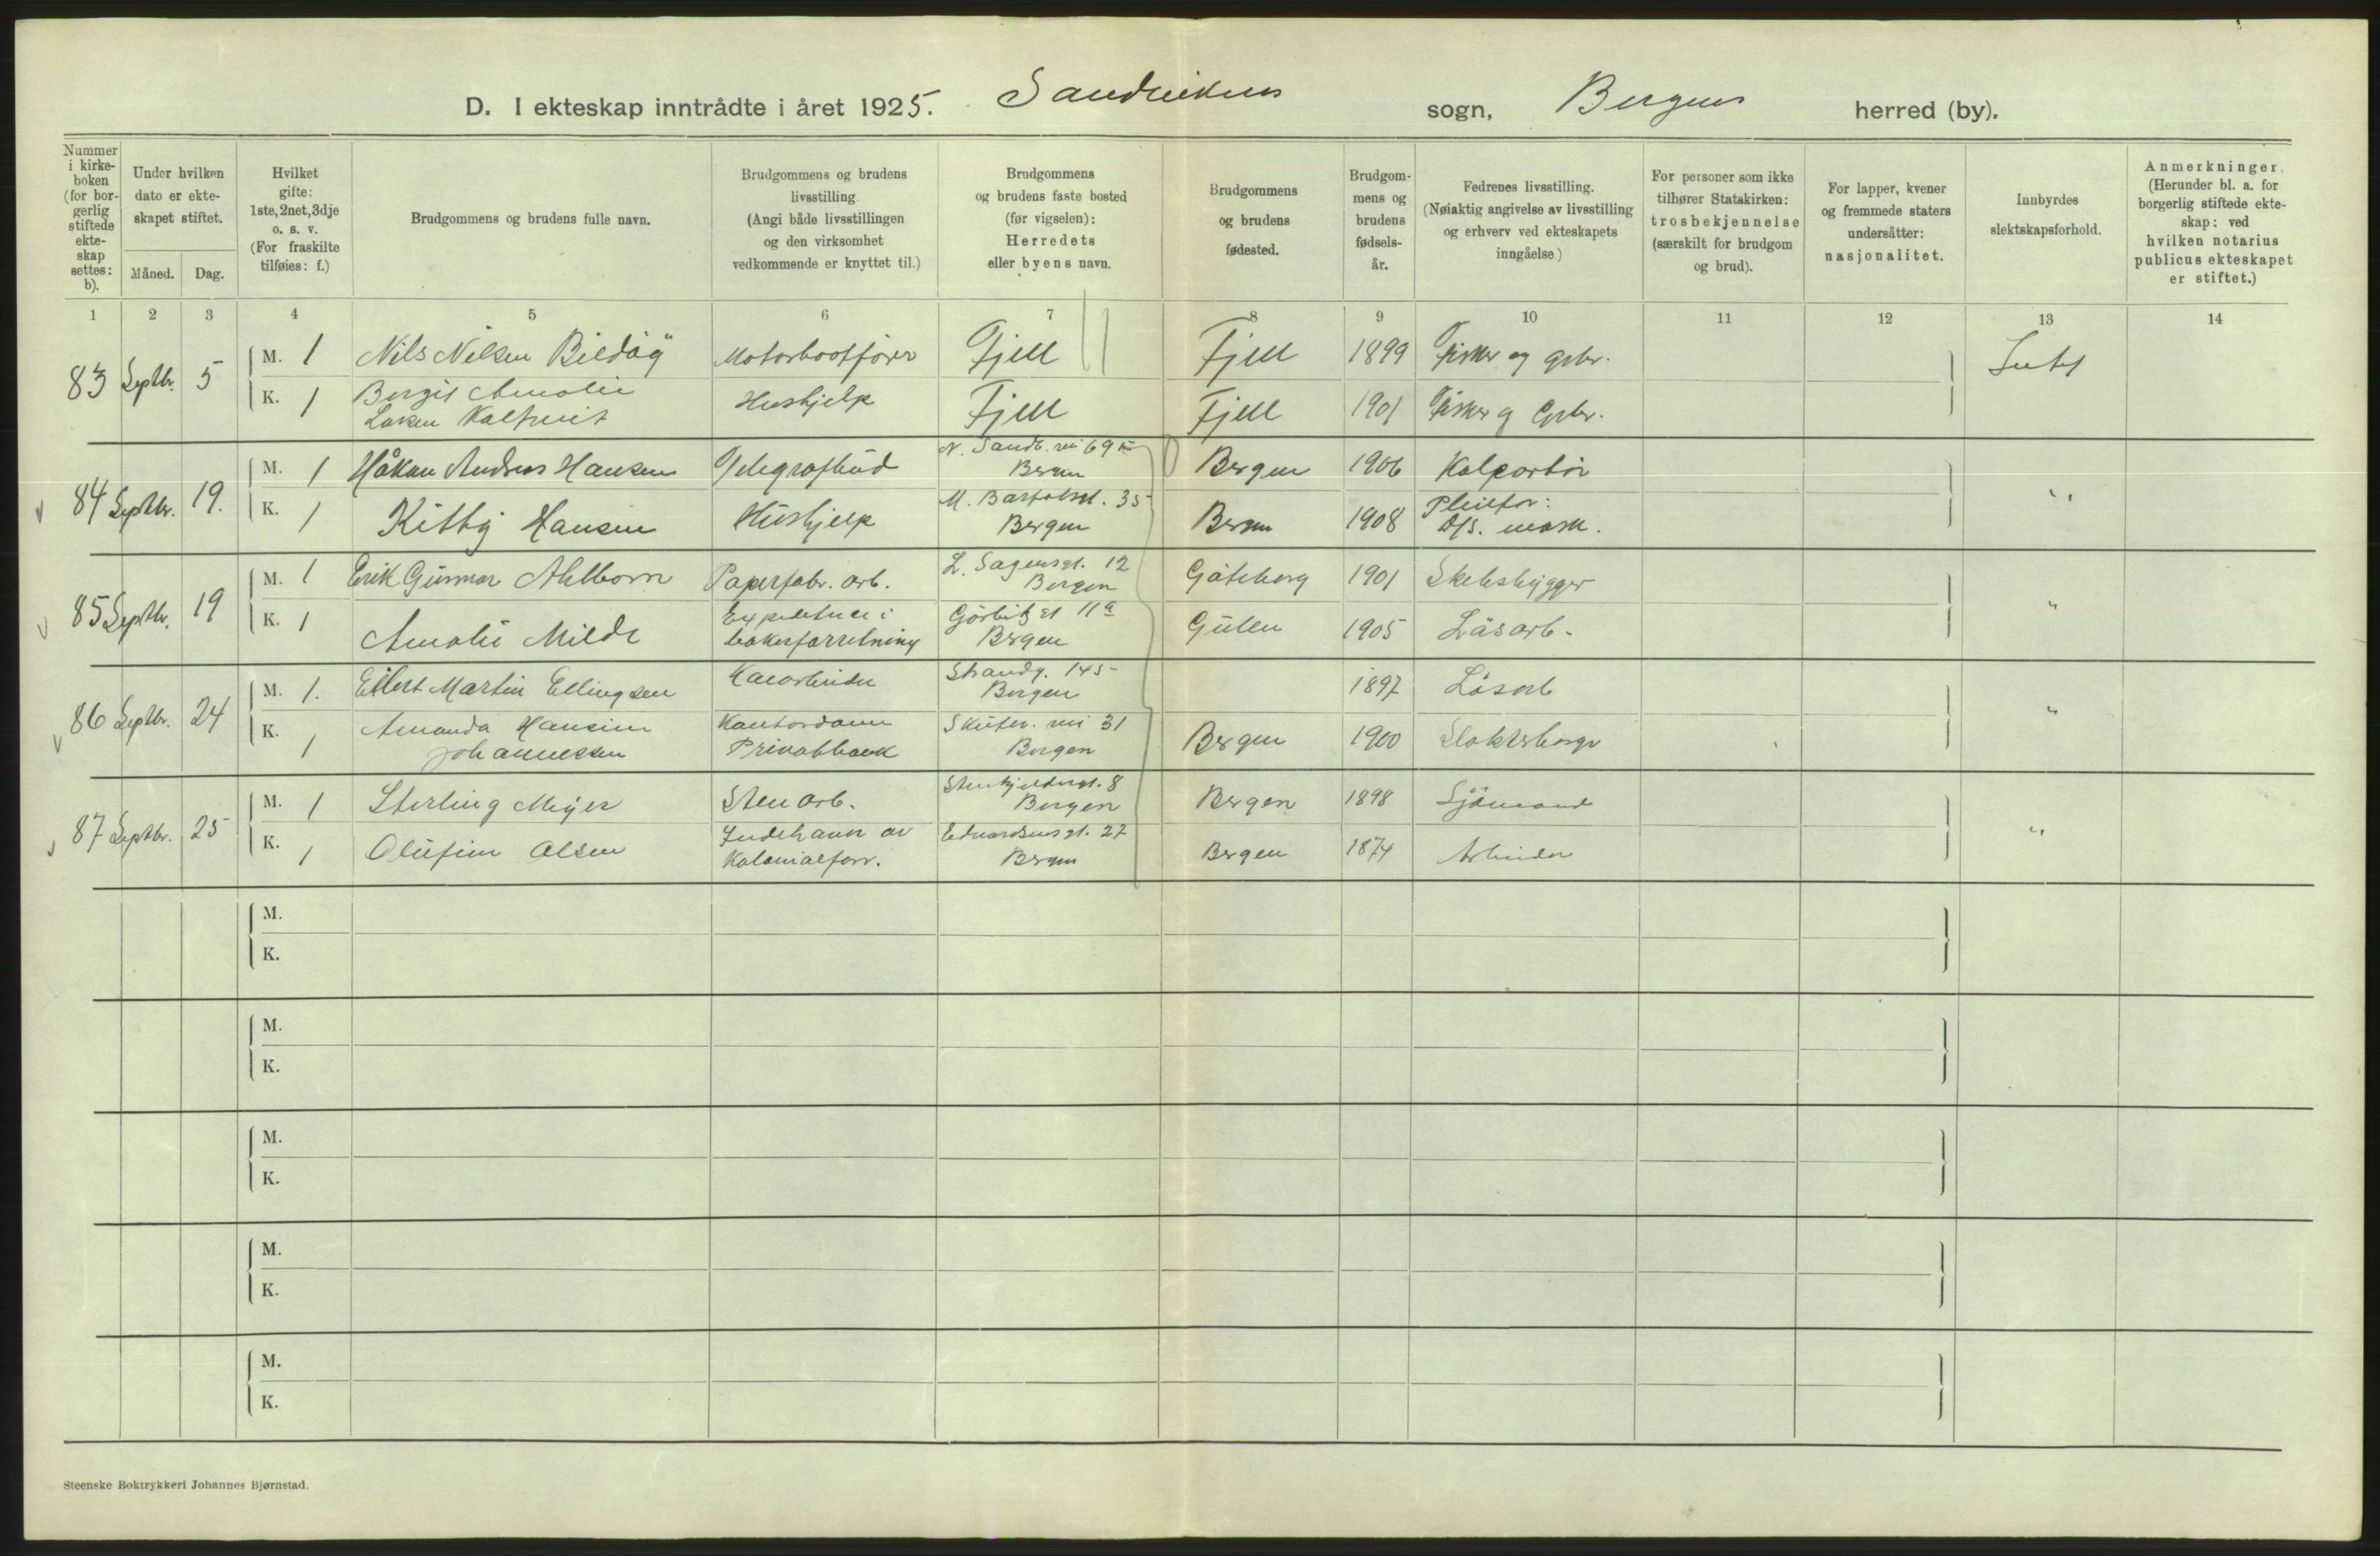 D. I ekteskap inntrådte i året 1925. Sandvikens sogn, Bergens herred (by).
Nummer i kirkeboken (for borgerlig stiftede ekteskap settes: b).
Under hvilken dato er ekteskapet stiftet.
Måned. Dag.
Hvilket gifte: 1ste, 2net, 3dje o. s. v. (For fraskilte tilføies: f.)
Brudgommens og brudens fulle navn.
Brudgommens og brudens livsstilling (Angi både livsstillingen og den virksomhet vedkommende er knyttet til.)
Brudgommens og brudens faste bosted (før vigselen): Herredets eller byens navn.
Brudgommens og brudens fødested.
Brudgommens og brudens fødselsår.
Fedrenes livsstilling. (Nøiaktig angivelse av livsstilling og erhverv ved ekteskapets inngåelse.)
For personer som ikke tilhører Statskirken: trosbekjennelse (særskilt for brudgom og brud).
For lapper, kvener og fremmede staters undersåtter: nasjonalitet.
Innbyrdes slektskapsforhold.
Anmerkninger. (Herunder bl. a. for borgerlig stiftede ekteskap: ved hvilken notarius publicus ekteskapet er stiftet.)
1 2 3 4 5 6 7 8 9 10 11 12 13 14
83 Septbr. 5 M. 1 Nils Nilsen Bildöy Motorbootförer Fjell Fjell 1899 Fisker og gbr. Intet
K. 1 Bergit Amalie Hushjelp Fjell Fjell 1901 Fisker og Gbr.
Laksen Kaltveit
84 Septbr. 19. M. 1 Håkon Andreas Hansen Telegrafbud N. Sandv. vei 69
Bergen Bergen 1906 Kolportör "
K. 1 Kitty Hansen Hushjelp M. Bartolsmt. 35
Bergen Bergen 1908 Pleiefar:
D/S. mask.
85 Septbr. 19 M. 1 Erik Gunnar Ahlborn Papirfabr. arb. L. Sagensgt. 12
Bergen Göteborg 1901 Skibsbygger "
K. 1 Amalie Milde Expeditrice i Görbitzgt 11a
bakerforretning Bergen Gulen 1905 Läsarb.
86 Septbr. 24 M. 1. Eilert Martin Ellingsen Kaiarbeider Strandg. 145
Bergen 1897 Lösarb "
K. 1 Amanda Hansine Kontordame Skuten. vei 31
Johannessen Privatbank Bergen Bergen 1900 Slakterborger
87 Septbr. 25 M. 1 Sterling Meyer Stenarb. Stenkjeldergt. 8
Bergen Bergen 1898 Sjömand "
K. 1 Olufine Olsen Indehaver av Edvardsensgt. 27
Kolonialforr. Bergen Bergen 1874 Arbeider
M.
K.
M.
K.
M.
K.
M.
K.
M.
K.
Steenske Boktrykkeri Johannes Bjørnstad.